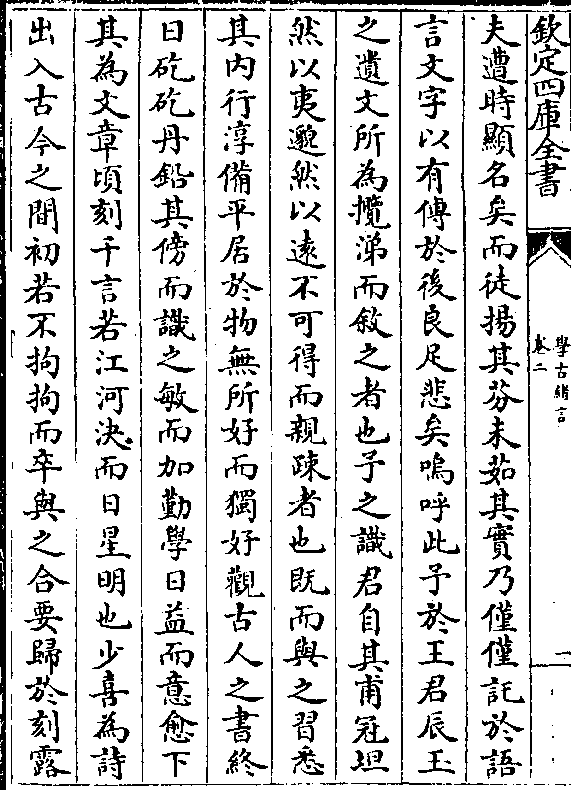 欽定四庫全書
學古緒言
卷二
一
夫遭時顯名矣而徒揚其芬未茹其實乃僅僅託於語
言文字以有傳於後良足悲矣嗚呼此予於王君辰玉
之遺文所為攬涕而敘之者也予之識君自其甫冠坦
然以夷邈然以遠不可得而親疎者也既而與之習悉
其内行淳備平居於物無所好而獨好觀古人之書終
日矻矻丹鉛其傍而識之敏而加勤學日益而意愈下
其為文章頃刻千言若江河決而日星明也少喜為詩
出入古今之間初若不拘拘而卒與之合要歸於刻露